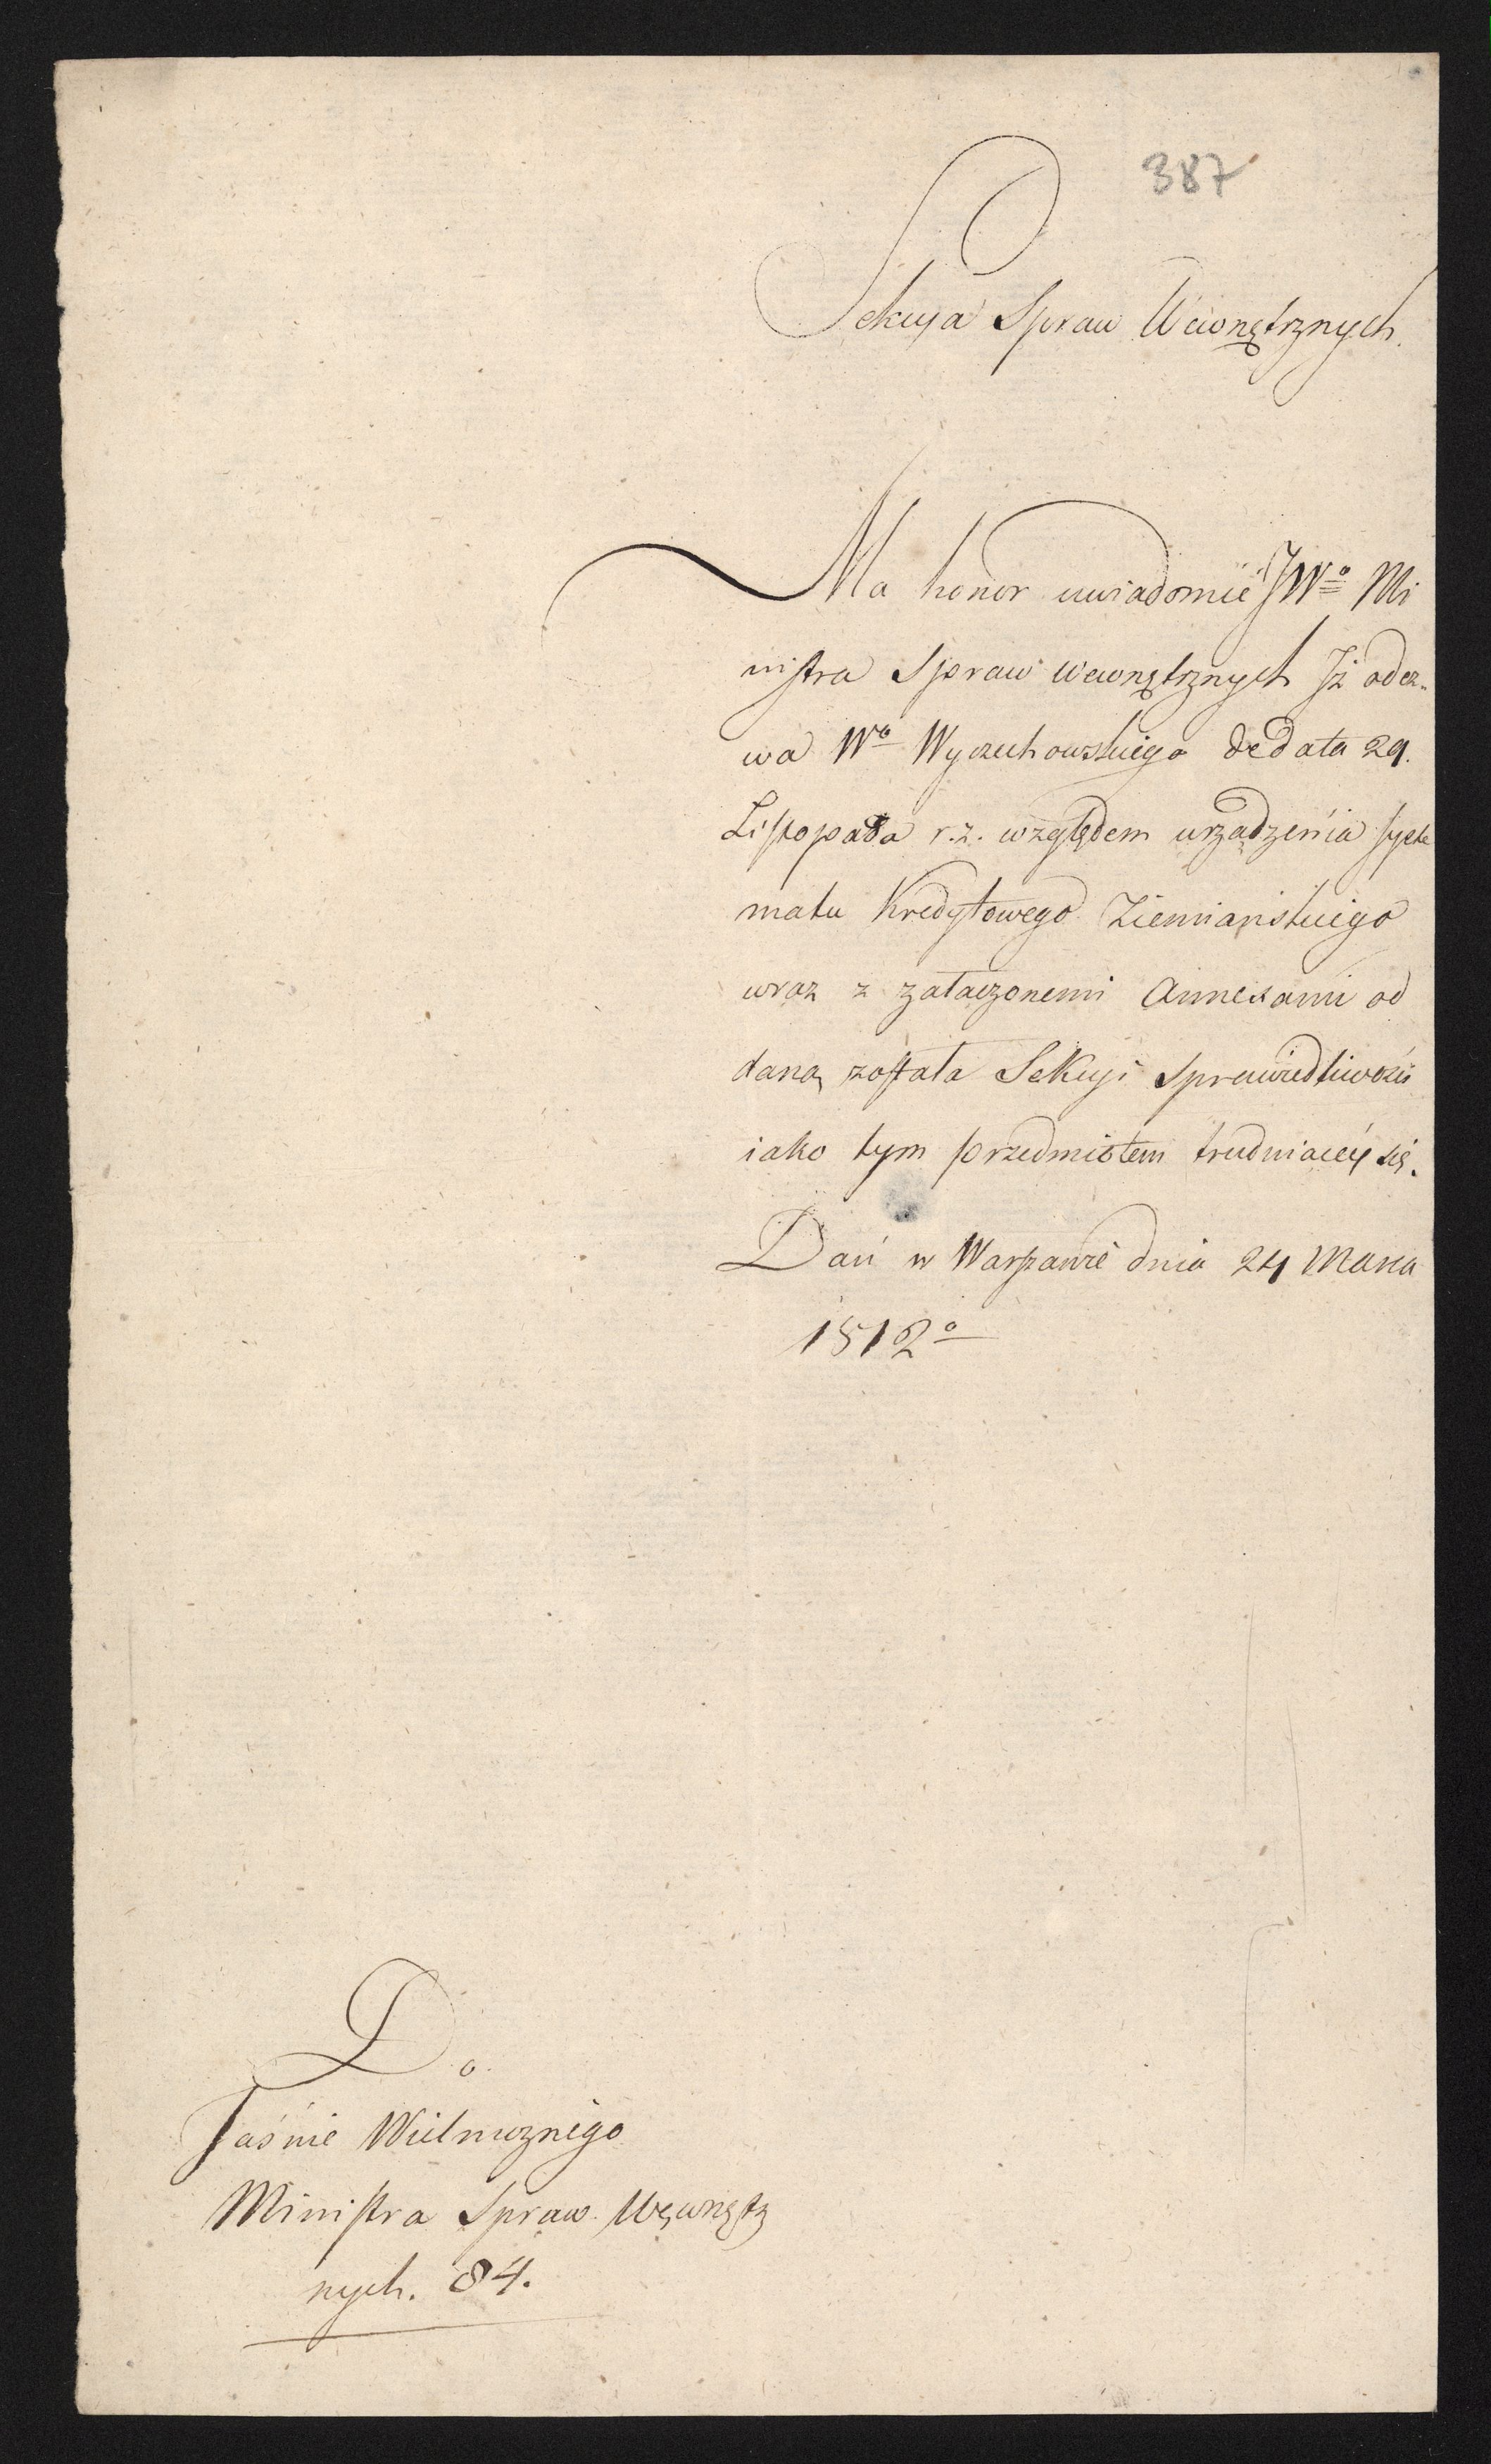 387
Sekcya Spraw Wewnętrznych.
Ma honor uwiadomić JWo Mi
nistra Spraw Wewnętrznych Iż odez-
wa Wo Wyczechowskiego de data 29.
Listopada r.z. względem urządzenia syste
matu Kredytowego Ziemiańskiego
wraz z załączonemi Annexami od
daną została Sekcyi Sprawiedliwości
iako tym przedmiotem trudniącéy się.
Dań w Warszawie dnia 24 Marca
1812o
Do
Jaśnie Wielmoznego
Ministra Spraw Wewnętrz
nych. 84.